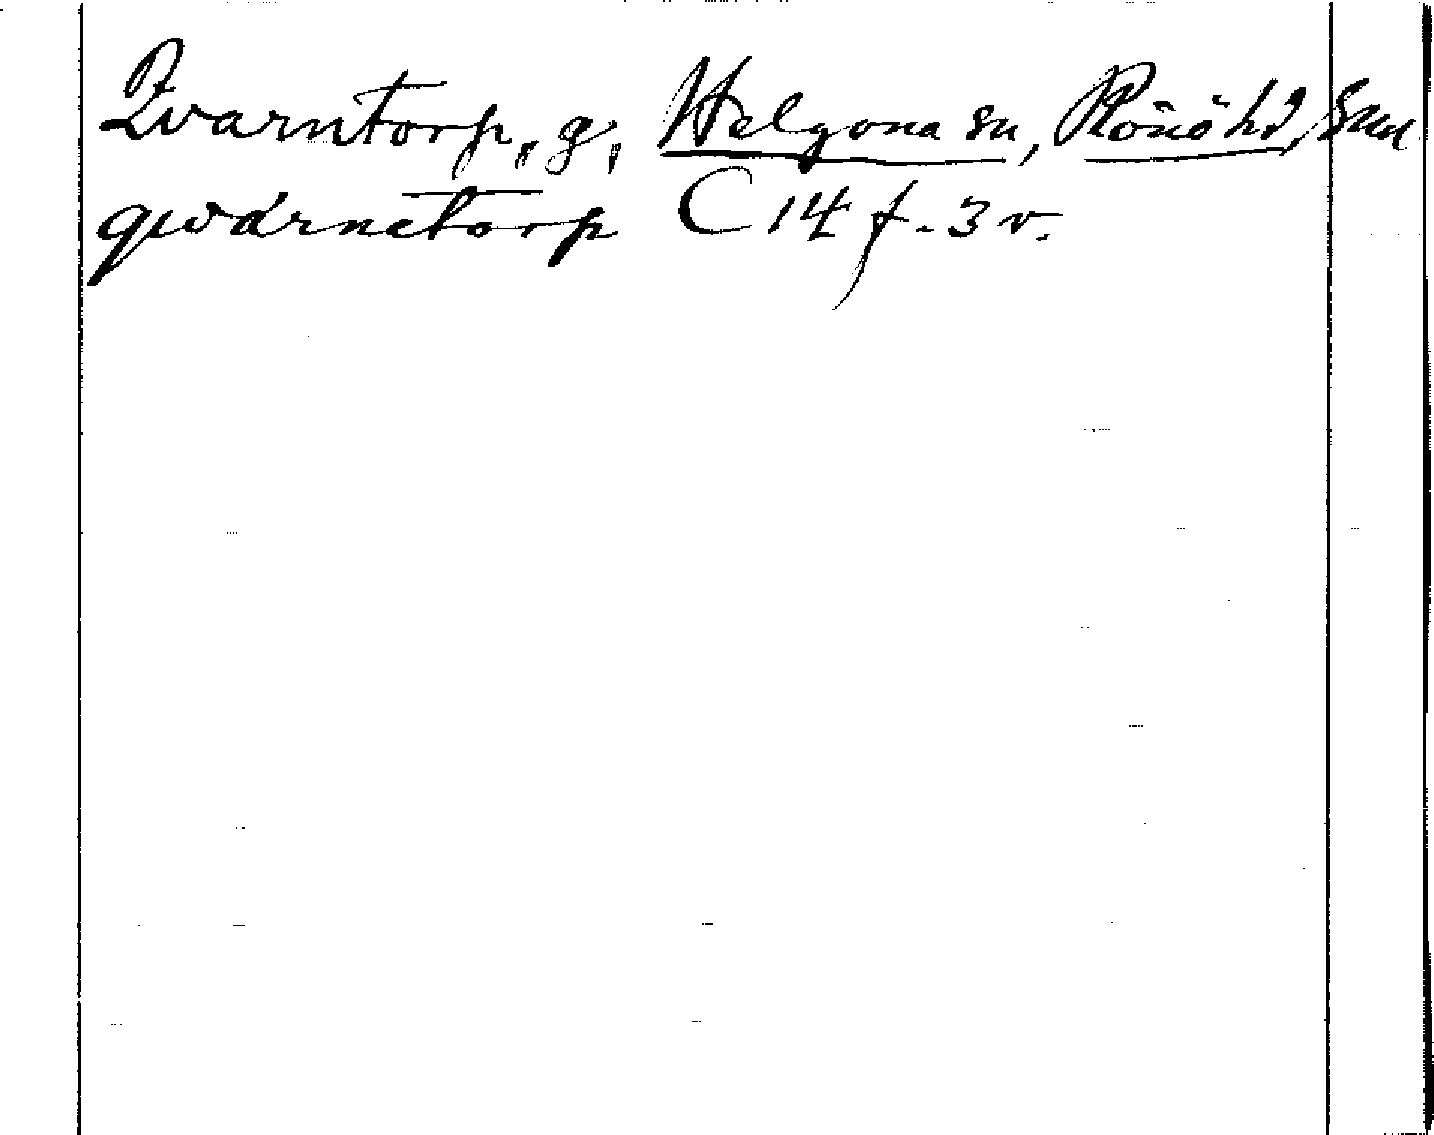 Qvarntorp, g, Helgona sn, Rönö hd, Sml
qwarnetorp C 14 f. 3 v.